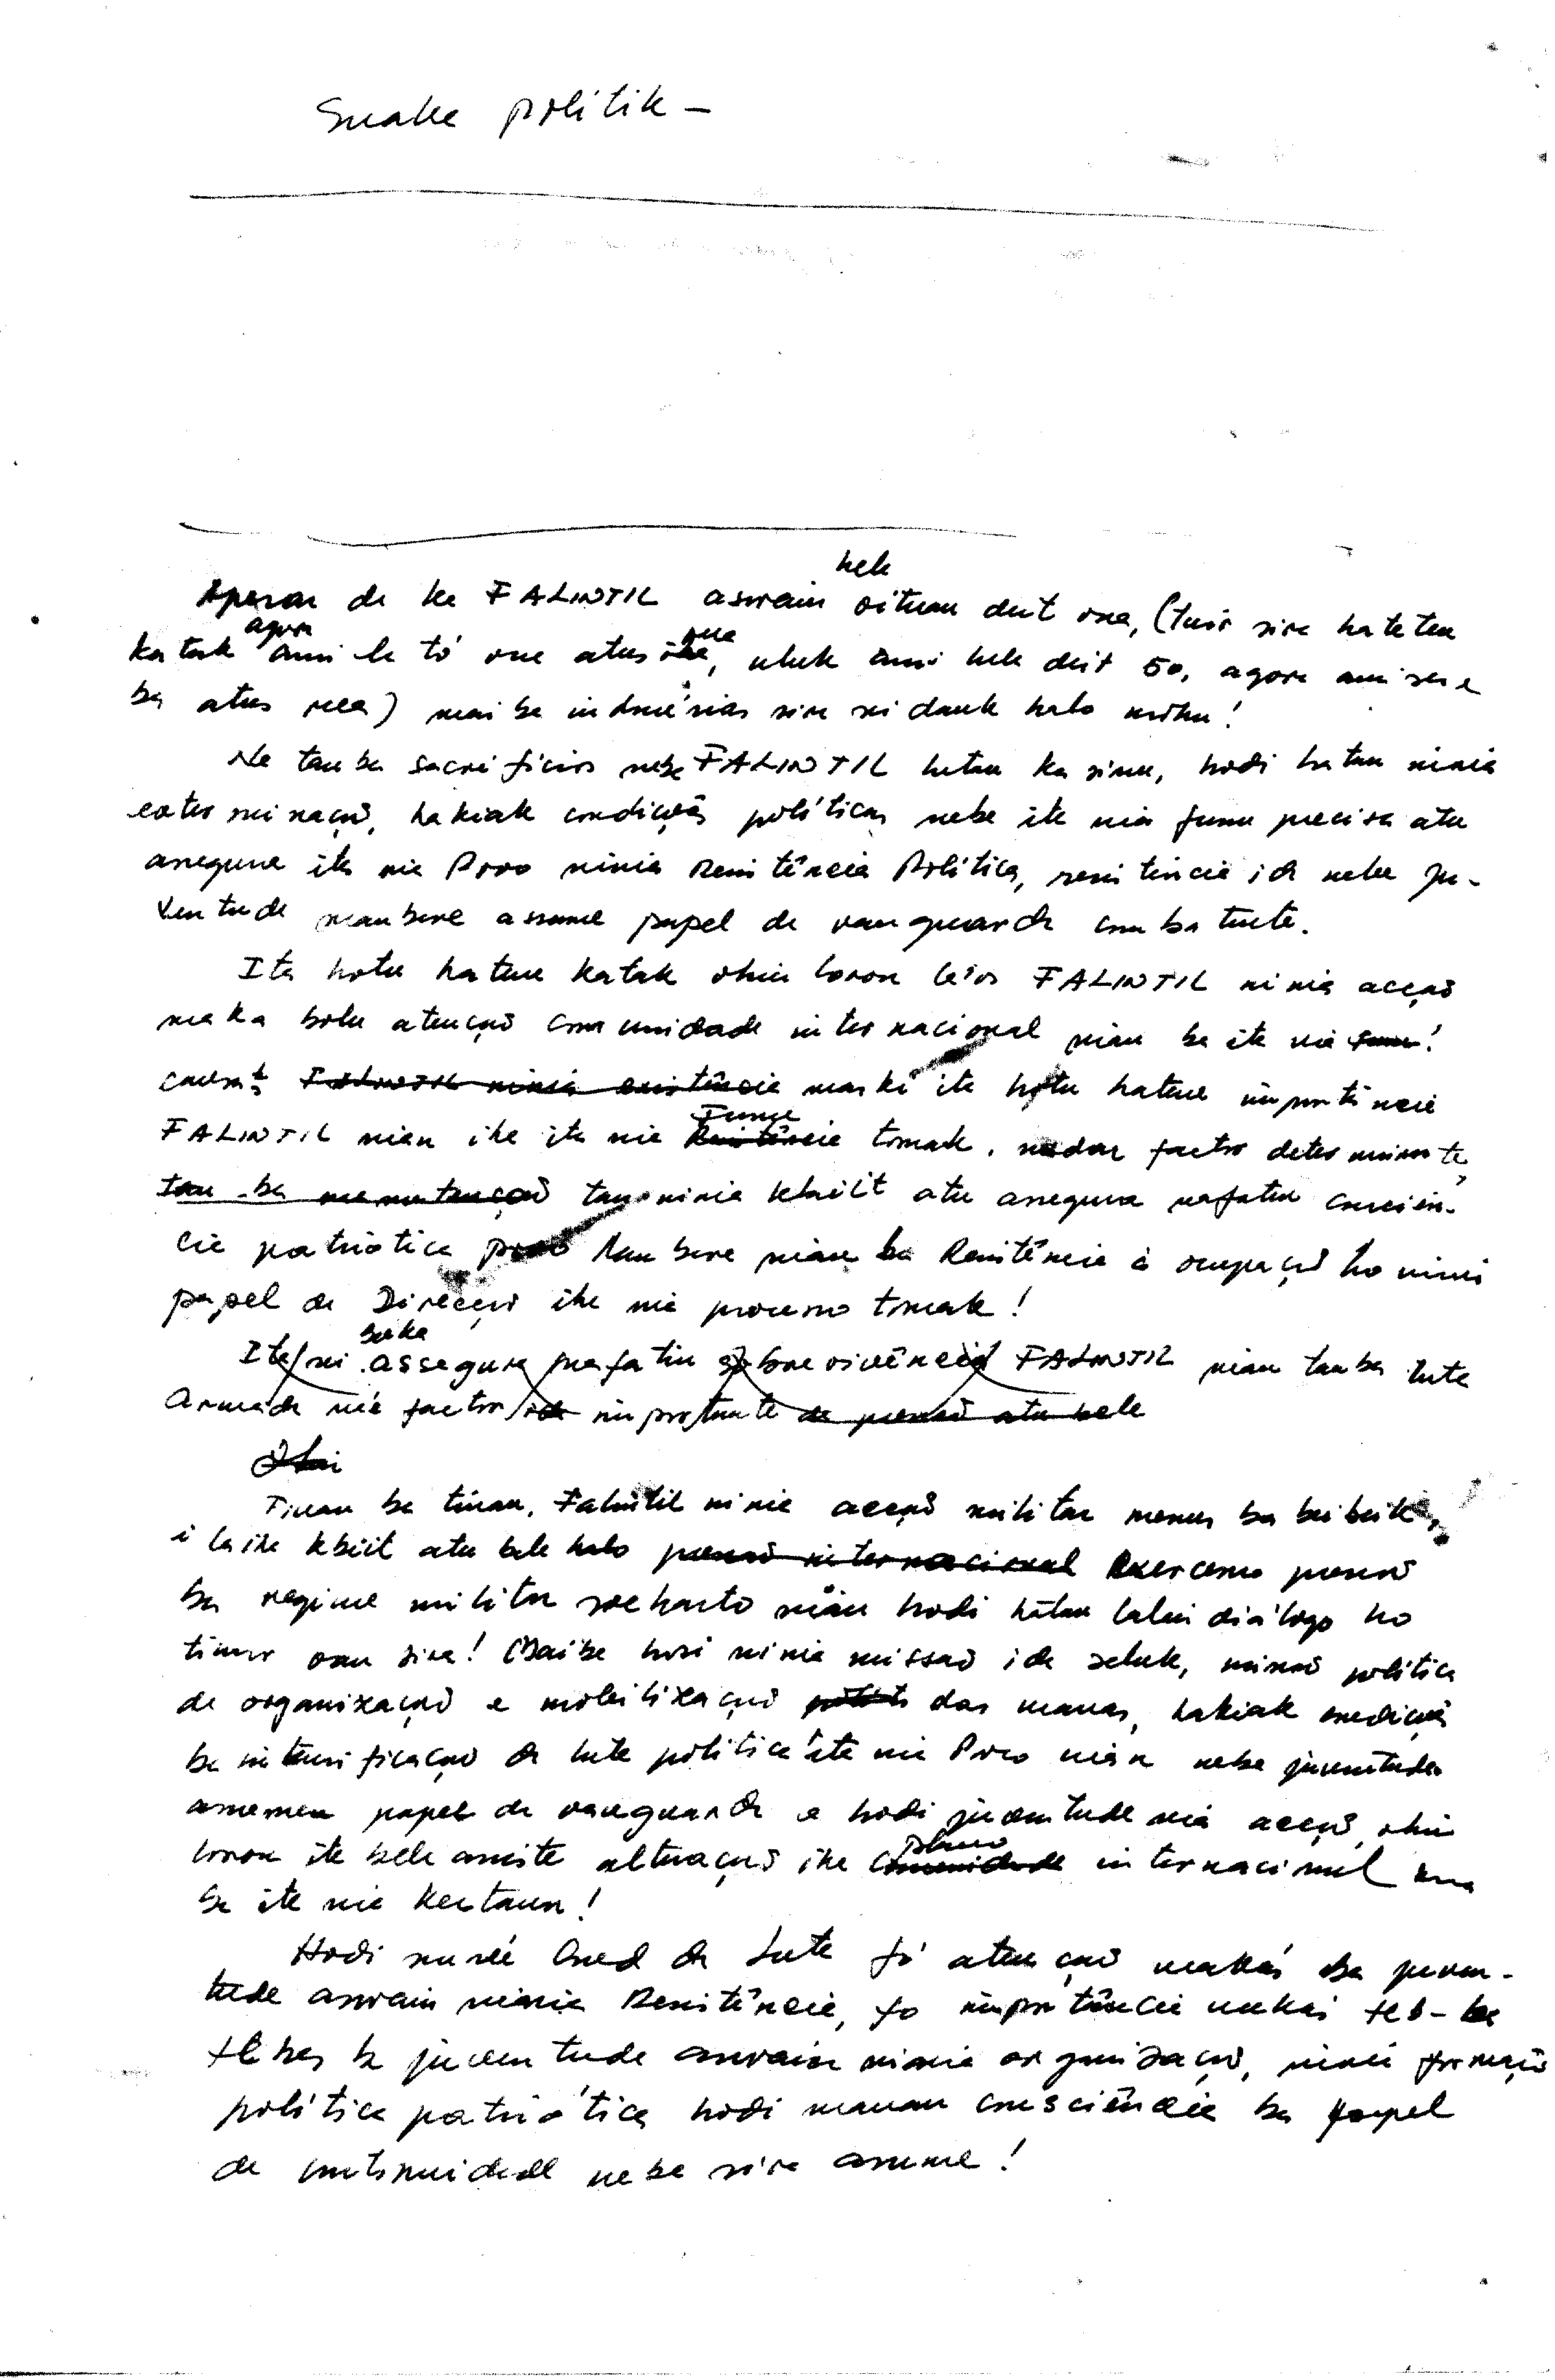 Suake politik –
hela
Apesar de ke FALINTIL aswain oituan deit ona, (tuir sira hateten
agora
katak ami la to' ona atus rua, uluk ami hela deit 50, agora ami sae
ba atus rua) maibe indonésias sira sei dauk halo mohu!
Ne tan ba sacrifícios nebe FALINTIL hetan ka simu, hodi hatan ninia
exterminação, hakiak condições políticas nebe ita nia funu precisa atu
assegura ita nia Povo ninia Resistência Política, resistência ida nebe ju-
ventude maubere assume papel de vanguarda combatente.
Ita hotu hatene katak ohin loron la'os FALINTIL ninia acção
maka bolu atenção comunidade internacional nian ba ita nia funu!
causa! Falintil ninia existência maski ita hotu hatene importância
Funu
FALINTIL nian iha ita nia Resistência tomak, nudar factor determinante,
tau ba manutenção tan ninia kbiit atu assegura nafatin consciên-
cia patriótica povo Maubere nian ba Resistência à ocupação ho ninia
papel de Direcção iha nia processo tomak!
buka
Ita sei assegura nafatin sobrevivência FALINTIL nian tan ba luta
Armada né factor ida importante de pressão atu bele
Ohin
Tinan ba tinan, Falintil ninia acção militar menus ba beibeik,
i la iha kbiit atu bele halo pressão internacional exercemo pressão
ba regime militar soeharto nian hodi hatan lalai diálogo ho
timor oan sira! Maibe hosi ninia missão ida seluk, missão política
de organização e mobilização das massas, hakiak condições
ba intensificação da luta política ita nia Povo nian nebe juventude
assumem papel de vanguarda e hodi juventude nia acção, ohin
plano
loron ita bele assiste alteração iha comunidade internacional kona
ba ita nia kestaun!
Hodi nuné Cons. da Luta fó atenção makás ba juven-
tude aswain ninia Resistência, fo importância makás teb-
tebes ba juventude aswain ninia organização, ninia formação
política patriótica hodi manan consciência ba papel
de continuidade nebe sira assume!